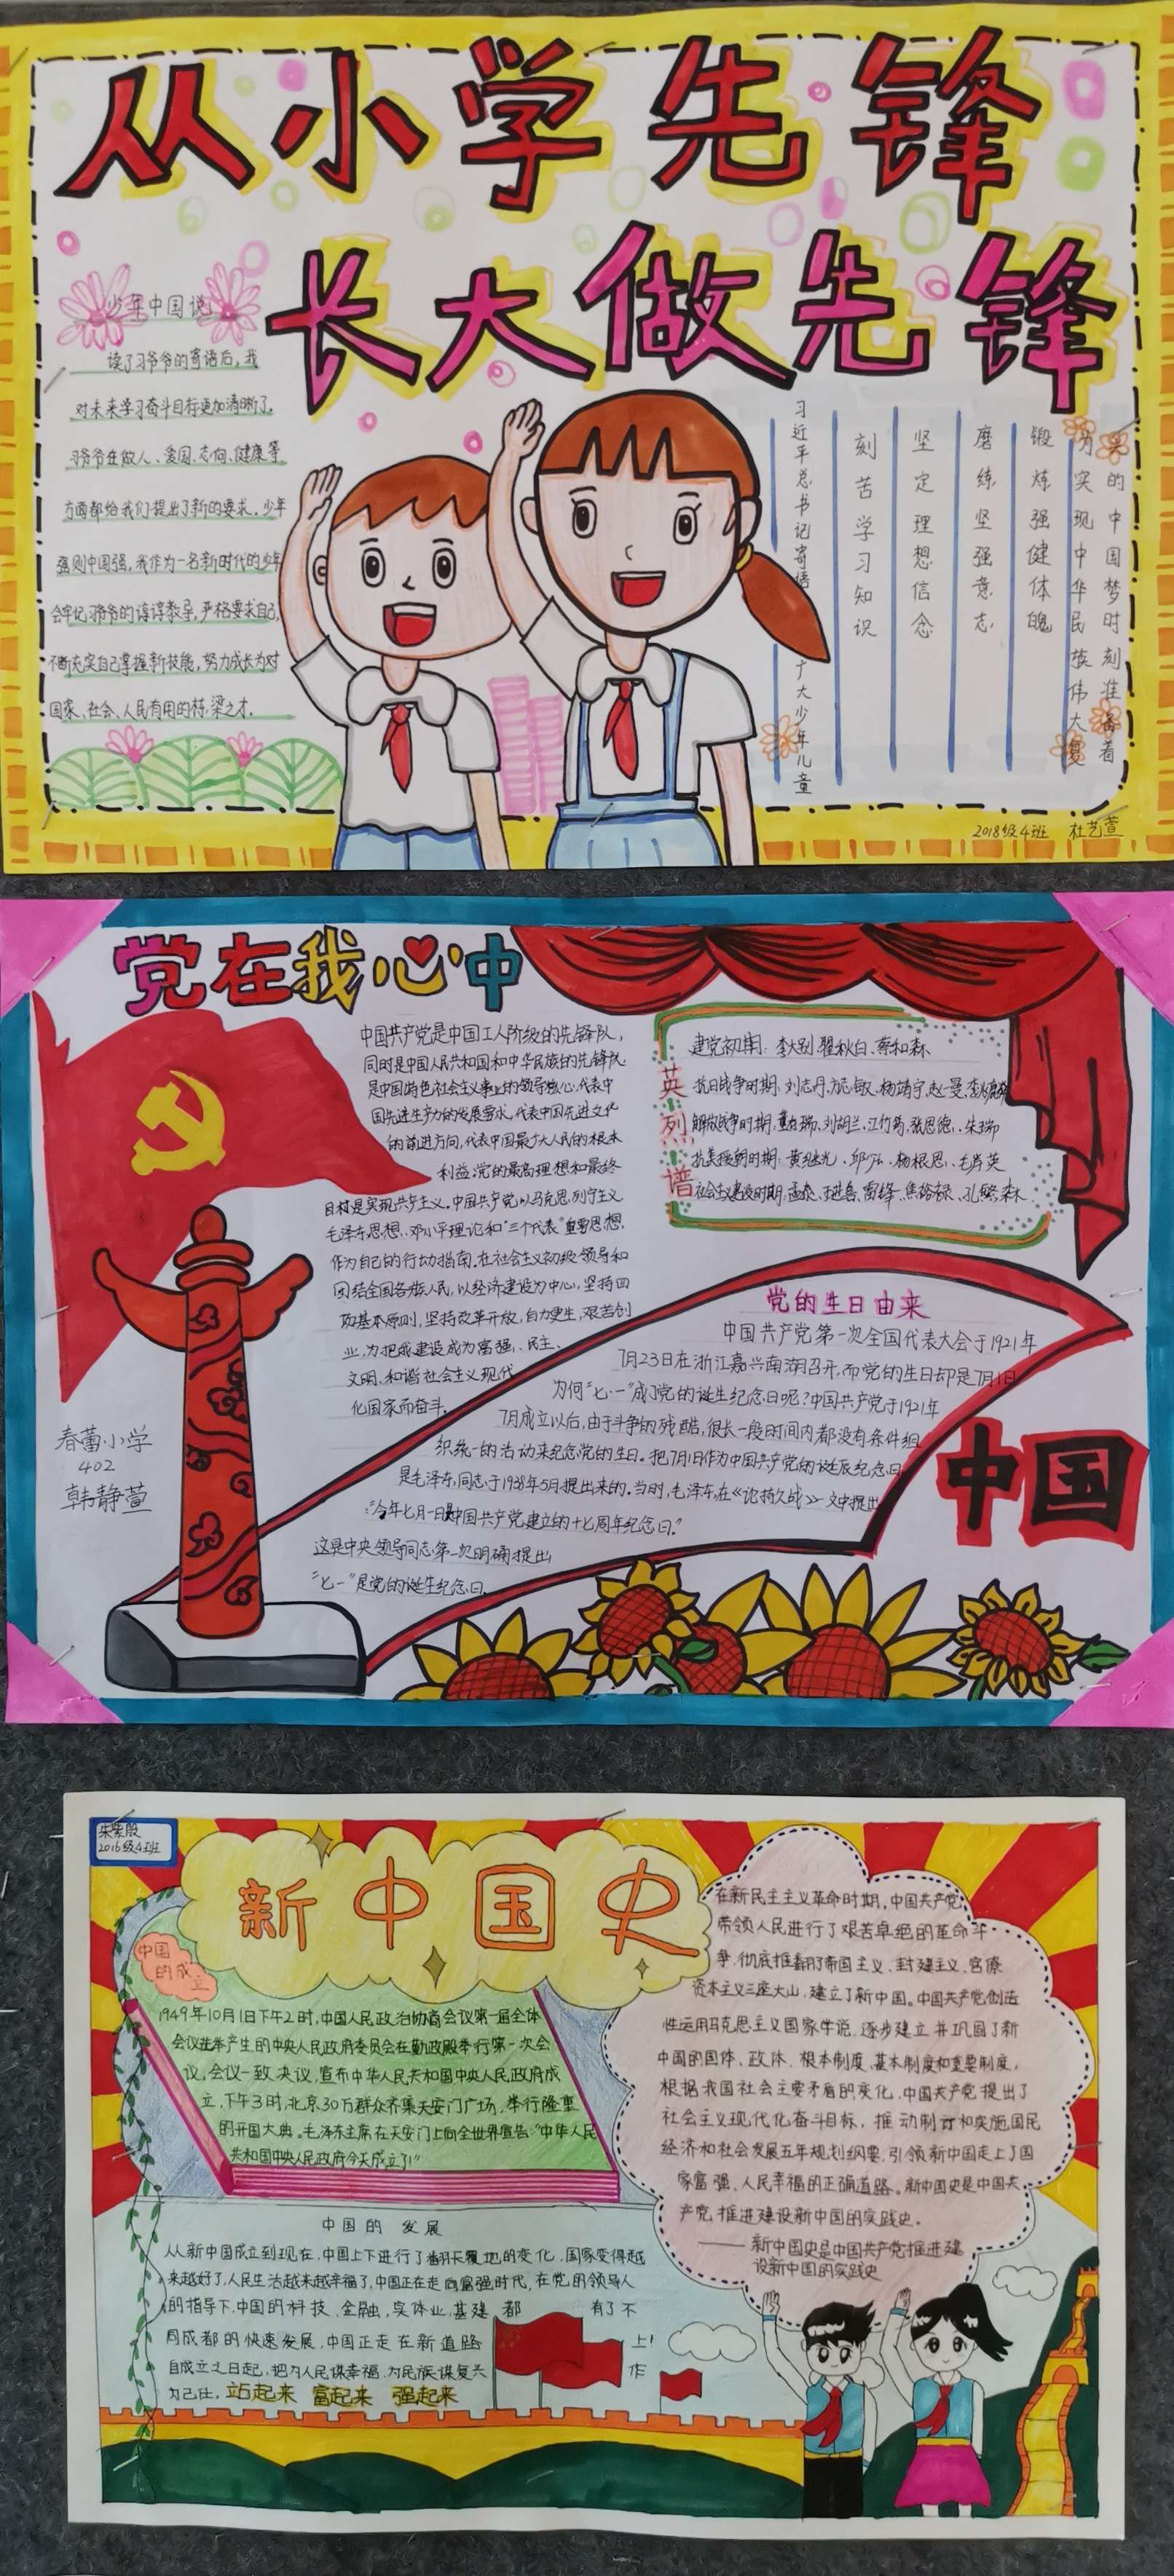 从小学先锋
长大做先锋
少年中国说
读了习爷爷的寄语后,我
对未来学习奋斗目标更加清晰了,
习爷爷在做人、爱国、志向、健康等
方面都给我们提出了新的要求。少年
强则中国强,我作为一名新时代的少年
会牢记习爷爷的谆谆教导,严格要求自己,
不断充实自己掌握新技能,努力成长为对
国家、社会、人民有用的栋梁之才.
习近平总书记寄语广大少年儿童
刻苦学习知识
坚定理想信念
磨练坚强意志
锻炼强健体魄
为实现中华民族伟大复
兴的中国梦时刻准备着
2018级4班 杜艺萱
党在我心中
中国共产党是中国工人阶级的先锋队,
同时是中国人民共和国和中华民族的先锋队
是中国特色社会主义事业的领导核心,代表中
国先进生产力的发展要求,代表中国先进文化
的前进方向,代表中国最广大人民的根本
利益.党的最高理想和最终
目标是实现共产主义.中国共产党以马克思列宁主义
毛泽东思想、邓小平理论和“三个代表”重要思想,
作为自己的行动指南.在社会主义初级领导和
团结全国各族人民,以经济建设为中心,坚持四
项基本原则,坚持改革开放,自力更生,艰苦创
业,为把我建设成为富强、民主、
文明、和谐社会主义现代
化国家而奋斗.
英烈谱
建党初期: 李大钊 瞿秋白、蔡和森
抗日战争时期:刘志丹、方志敏、杨靖宇、赵一曼、
解放战争时期:董存瑞、刘胡兰、江竹筠、张思德、朱瑞
抗美援朝时期:黄继光、邱少云、杨根思、毛岸英
社会主义建设时期:孟泰、王进喜、雷锋、焦裕禄、孔繁森
党的生日由来
中国共产党第一次全国代表大会于1921年
7月23日在浙江嘉兴南湖召开,而党的生日却是7月1日
为何“七·一”成了党的诞生纪念日呢?中国共产党于1921年
7月成立以后,由于斗争的残酷,很长一段时间内都没有条件组
织统一的活动来纪念党的生日。把7月1日作为中国共产党的诞辰纪念日
是毛泽东同志于1938年5月提出来的。当时,毛泽东在《论持久战》一文中提出
“今年七月一日是中国共产党建立的十七周年纪念日。”
这是中央领导同志第一次明确提出
“七一”是党的诞生纪念日.
中国
春蕾小学
402
韩静萱
朱紫殷
2016级4班
新中国史
中国
的成立
1949年10月1日下午2时,中国人民政治协商会议第一届全体
会议选举产生的中央人民政府委员会在勤政殿举行第一次会
议,会议一致决议,宣布中华人民共和国中央人民政府成
立,下午3时,北京30万群众齐集天安门广场,举行隆重
的开国大典。毛泽东主席在天安门上向全世界宣告:“中华人民
共和国中央人民政府今天成立了!”
在新民主主义革命时期,中国共产党
带领人民进行了艰苦卓绝的革命斗
争,彻底推翻了帝国主义、封建主义、官僚
资本主义三座大山,建立了新中国。中国共产党创造
性运用马克思主义国家学说,逐步建立并巩固了新
中国的国体、政体、根本制度、基本制度和重要制度,
根据我国社会主要矛盾的变化,中国共产党提出了
社会主义现代化奋斗目标,推动制订和实施国民
经济和社会发展五年规划纲要,引领新中国走上了国
家富强、人民幸福的正确道路。新中国史是中国共
产党推进建设新中国的实践史。
——新中国史是中国共产党推进建
设新中国的实践史
中国的 发展
从新中国成立到现在,中国上下进行了翻天覆地的变化,国家变得越
来越好了,人民生活越来越幸福了,中国正在走向富强时代,在党的领导人
的指导下,中国的科技,金融,实体业,基建 都 有了不
同成都的快速发展,中国正走在新道路 上!
自成立之日起,把为人民谋幸福,为民族谋复兴 作
为己任, 站起来 富起来 强起来